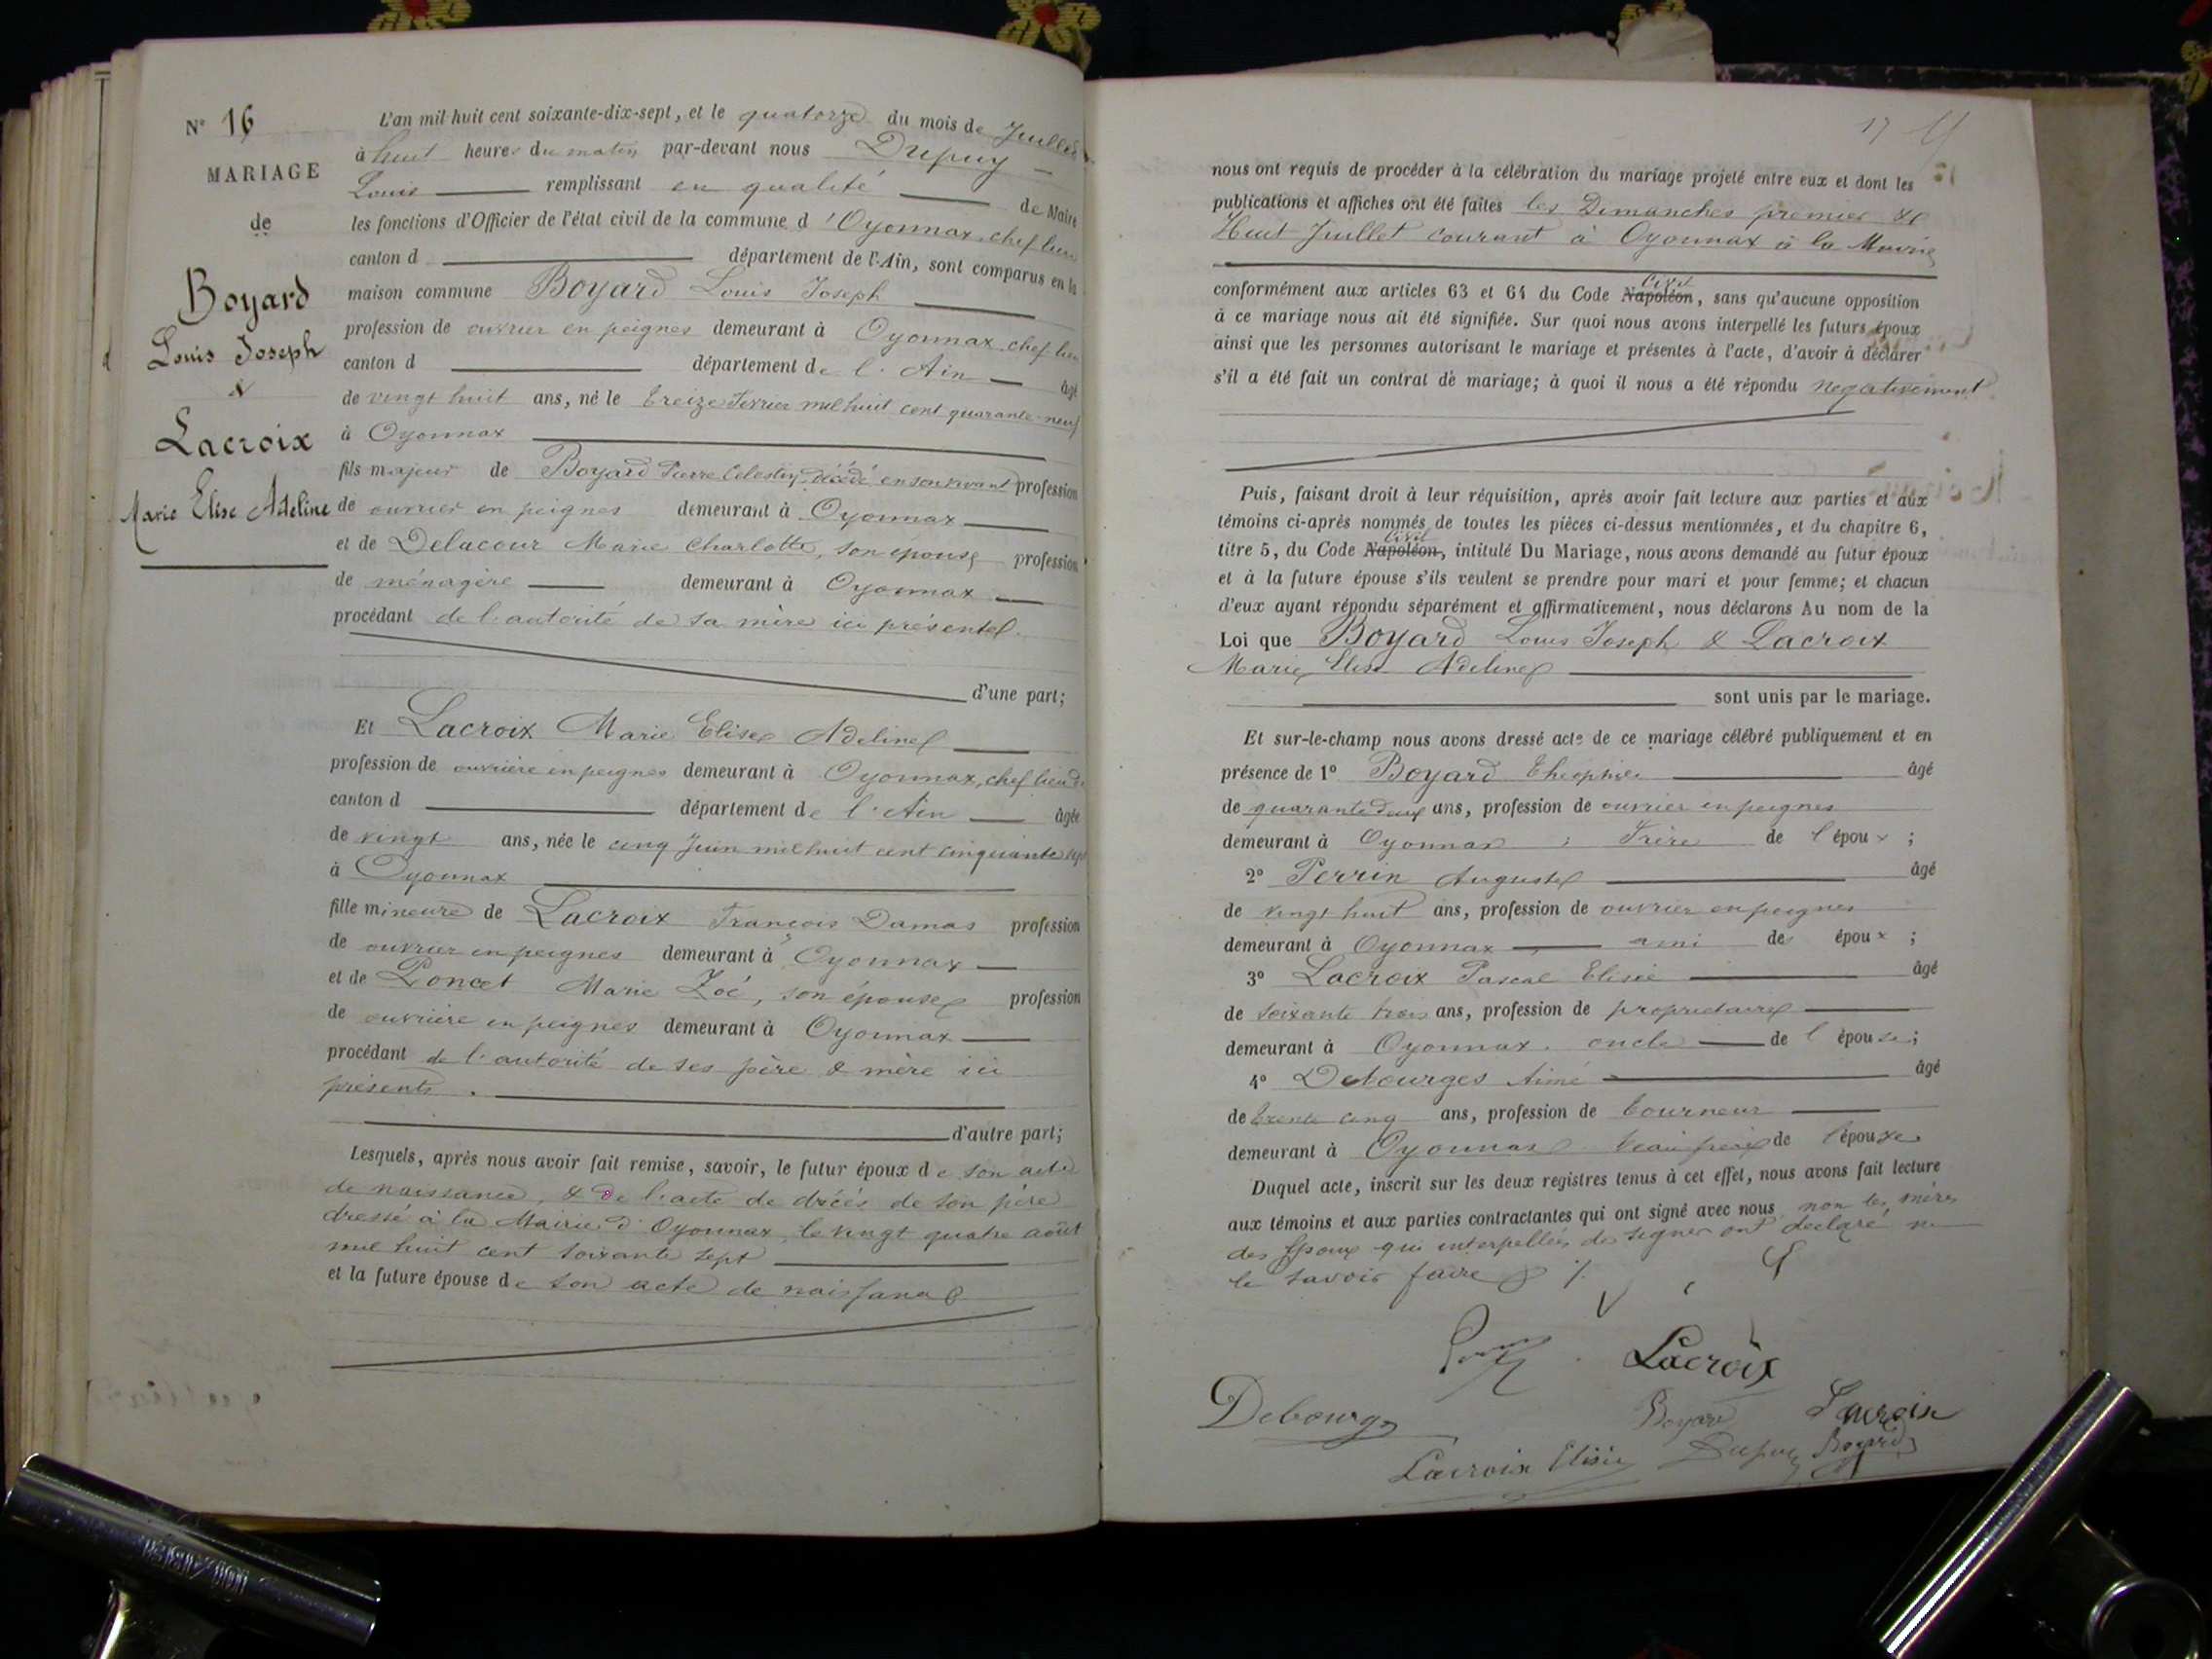 N° 16
MARIAGE
de
Boyard
Louis Joseph
&
Lacroix
Marie Elise Adeline
L'an mil huit cent soixante-dix-sept, et le quatorze du mois de Juillet
à huit heures du matin par-devant nous Dupuy
Louis remplissant en qualité de Maire
les fonctions d'Officier de l'état civil de la commune d'Oyonnax, chef lieu
canton d département de l'Ain, sont comparus en la
maison commune Boyard Louis Joseph
profession de ouvrier en peignes demeurant à Oyonnax, chef lieu
canton d département de l'Ain âgé
de vingt huit ans, né le treize Fevrier mil huit cent quarante-neuf
à Oyonnax
fils majeur de Boyard Pierre Célestin, décédé en son vivant profession
de ouvrier en peignes demeurant à Oyonnax
et de Delacour Marie Charlotte, son épouse profession
de ménagère demeurant à Oyonnax
procédant de l'autorité de sa mère ici présente.
d'une part;
Et Lacroix Marie Elise Adeline
profession de ouvrière en peignes demeurant à Oyonnax, chef lieu de
canton d département de l'Ain âgée
de vingt ans, née le cinq Juin mil huit cent cinquante sept
à Oyonnax
fille mineure de Lacroix François Damas profession
de ouvrier en peignes demeurant à Oyonnax
et de Poncet Marie Zoé, son épouse profession
de ouvrière en peignes demeurant à Oyonnax
procédant de l'autorité de ses père & mère ici
présents.
d'autre part;
Lesquels, après nous avoir fait remise, savoir, le futur époux de son acte
de naissance, & de l'acte de décès de son père
dressé à la Mairie d'Oyonnax, le vingt quatre août
mil huit cent soixante sept
et la future épouse de son acte de naissance
17
nous ont requis de procéder à la célébration du mariage projeté entre eux et dont les
publications et affiches ont été faites les Dimanches premier &
Huit Juillet courant à Oyonnax à la Mairie
Civil
conformément aux articles 63 et 64 du Code Napoléon, sans qu'aucune opposition
à ce mariage nous ait été signifiée. Sur quoi nous avons interpellé les futurs époux
ainsi que les personnes autorisant le mariage et présentes à l'acte, d'avoir à déclarer
s'il a été fait un contrat de mariage; à quoi il nous a été répondu négativement
Puis, faisant droit à leur réquisition, après avoir fait lecture aux parties et aux
témoins ci-après nommés de toutes les pièces ci-dessus mentionnées, et du chapitre 6,
Civil
titre 5, du Code Napoléon, intitulé Du Mariage, nous avons demandé au futur époux
et à la future épouse s'ils veulent se prendre pour mari et pour femme; et chacun
d'eux ayant répondu séparément et affirmativement, nous déclarons Au nom de la
Loi que Boyard Louis Joseph & Lacroix
Marie Elise Adeline
sont unis par le mariage.
Et sur-le-champ nous avons dressé acte de ce mariage célébré publiquement et en
présence de 1° Boyard Théophile âgé
de quarante deux ans, profession de ouvrier en peignes
demeurant à Oyonnax ; Frère de l'époux ;
2° Perrin Auguste âgé
de vingt huit ans, profession de ouvrier en peignes
demeurant à Oyonnax ami des époux ;
3° Lacroix Pascal Elisée âgé
de soixante trois ans, profession de propriétaire
demeurant à Oyonnax. oncle de l'épouse;
4° Debourges Aimé âgé
de trente cinq ans, profession de tourneur
demeurant à Oyonnax beau frère de l'épouse
Duquel acte, inscrit sur les deux registres tenus à cet effet, nous avons fait lecture
aux témoins et aux parties contractantes qui ont signé avec nous, non les mères
des Epoux qui interpellées de signer ont déclaré ne
le savoir faire
Lacroix
Debourg
Boyard Lacroix
Lacroix Elisée Dupuy Boyard